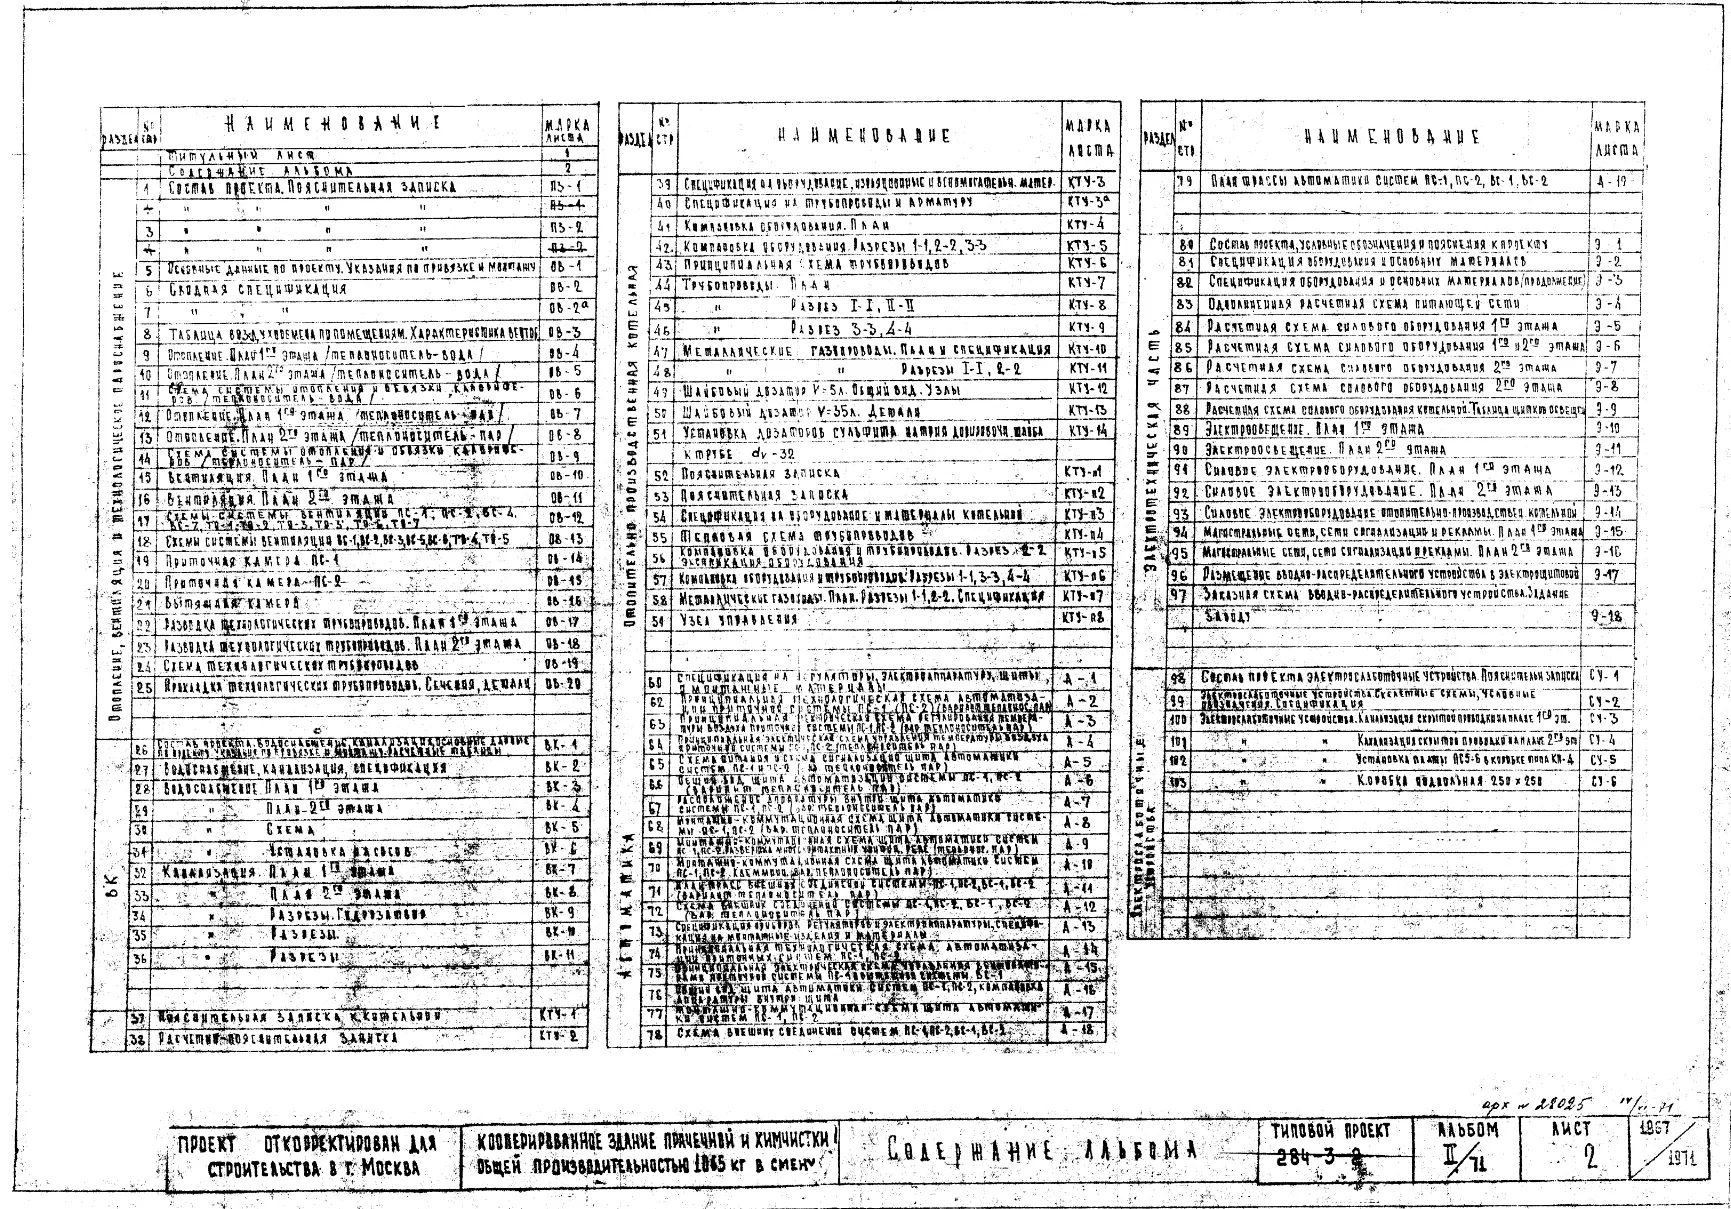 РАЗДЕЛ № СТР НАИМЕНОВАНИЕ МАРКА ЛИСТА
Титульный лист 1
Содержание альбома 2
1 Состав проекта. Пояснительная записка ПЗ-1
" " " " ПЗ-1
3 " " " " ПЗ-2
4 " " " " ПЗ-2
5 Основные данные по проекту. Указания по привязке и монтажу ОВ-1
6 Сводная спецификация ОВ-2
7 " " ОВ-2а
8 Таблица воздухообмена по помещениям. Характеристика вентоб ОВ-3
9 Отопление. План 1го этажа /теплоноситель-вода/ ОВ-4
10 Отопление. План 2го этажа /теплоноситель-вода/ ОВ-5
11 Схема системы отопления и обвязки калориферов /теплоноситель-вода/ ОВ-6
12 Отопление. План 1го этажа /теплоноситель-пар/ ОВ-7
13 Отопление. План 2го этажа /теплоноситель-пар/ ОВ-8
14 Схема системы отопления и обвязки калориферов /теплоноситель-пар/ ОВ-9
15 Вентиляция. План 1го этажа ОВ-10
16 Вентиляция. План 2го этажа ОВ-11
17 Схемы системы вентиляции ПС-1, ПС-2, ВС-4, ОВ-12
18 Схемы системы вентиляции ОВ-13
19 Приточная камера ПС-1 ОВ-14
20 Приточная камера ПС-2 ОВ-15
21 Вытяжная камера ОВ-16
22 Разводка технологических трубопроводов. План 1го этажа ОВ-17
23 Разводка технологических трубопроводов. План 2го этажа ОВ-18
24 Схема технологических трубопроводов ОВ-19
25 Прокладка технологических трубопроводов. Сечения, детали ОВ-20
ОТОПЛЕНИЕ, ВЕНТИЛЯЦИЯ И ТЕХНОЛОГИЧЕСКОЕ ПАРОСНАБЖЕНИЕ
26 Состав проекта. Водоснабжение, канализация. Основные данные ВК-1
27 Водоснабжение, канализация, спецификация ВК-2
28 Водоснабжение План 1го этажа ВК-3
29 " План 2го этажа ВК-4
30 " Схема ВК-5
31 " Установка насосов ВК-6
32 Канализация План 1го этажа ВК-7
33 " План 2го этажа ВК-8
34 " Разрезы. ВК-9
35 " Разрезы. ВК-10
36 " Разрезы ВК-11
ВК
37 Пояснительная записка к котельной КТУ-1
38 Расчетно-пояснительная записка КТУ-2
РАЗДЕЛ № СТР НАИМЕНОВАНИЕ МАРКА ЛИСТА
39 Спецификация на оборудование, изоляционные и вспомогательн. матер. КТУ-3
40 Спецификация на трубопроводы и арматуру КТУ-3а
41 Компановка оборудования. План КТУ-4
42 Компановка оборудования. Разрезы 1-1, 2-2, 3-3 КТУ-5
43 Принципиальная схема трубопроводов КТУ-6
44 Трубопроводы. План КТУ-7
45 " Разрез I-I, II-II КТУ-8
46 " Разрез 3-3, 4-4 КТУ-9
47 Металлические газопроводы. План и спецификация КТУ-10
48 " " Разрезы I-I, 2-2 КТУ-11
49 Шайбовый дозатор V-5л. Общий вид. Узлы КТУ-12
50 Шайбовый дозатор V-35л. Детали КТУ-13
51 Установка дозаторов сульфита натрия дозировочн. шайба КТУ-14
к трубе dу-32
52 Пояснительная записка КТУ-п1
53 Пояснительная записка КТУ-п2
54 Спецификация на оборудование и материалы котельной КТУ-п3
55 Тепловая схема трубопроводов КТУ-п4
56 Компановка оборудования и трубопроводов. Разрез 2-2 Экспликация оборудования КТУ-п5
57 Компановка оборудования и трубопроводов. Разрезы 1-1, 3-3, 4-4 КТУ-п6
58 Металлические газоходы. План. Разрезы 1-1, 2-2. Спецификация КТУ-п7
59 Узел управления КТУ-п8
ОТОПИТЕЛЬНО ПРОИЗВОДСТВЕННАЯ КОТЕЛЬНАЯ
60 Спецификация на регуляторы, электроаппаратуру, щиты и монтажные материалы А-1
62 Принципиальная технологическая схема автоматизации приточной системы ПС-1 (ПС-2) А-2
63 А-3
64 А-4
65 Схема питания и схема сигнализации щита автоматики систем ПС-1 и ПС-2 (теплоноситель пар) А-5
66 Общий вид щита автоматизации системы ПС-1, ПС-2 (вариант теплоноситель пар) А-6
67 Расположение аппаратуры внутри щита автоматики системы ПС-1, ПС-2 (вар. теплоноситель пар) А-7
68 Монтажно-коммутационная схема щита автоматики системы ПС-1, ПС-2 (вар. теплоноситель пар) А-8
69 Монтажно-коммутационная схема щита автоматики систем А-9
70 Монтажно-коммутационная схема щита автоматики систем А-10
71 А-11
72 Схема внешних соединений системы ПС-1, ПС-2, ВС-1, ВС-2 (вар. теплоноситель пар) А-12
73 А-13
74 Принципиальная технологическая схема автоматизации приточных систем ПС-1, ПС-2 А-14
75 А-15
76 Общий вид щита автоматики систем ПС-1, ПС-2, компановка аппаратуры внутри щита А-16
77 Монтажно-коммутационная схема щита автоматики систем ПС-1, ПС-2 А-17
78 Схема внешних соединений систем ПС-1, ПС-2, ВС-1, ВС-2 А-18
АВТОМАТИКА
РАЗДЕЛ № СТР НАИМЕНОВАНИЕ МАРКА ЛИСТА
79 План трассы автоматики систем ПС-1, ПС-2, ВС-1, ВС-2 А-19
80 Состав проекта, условные обозначения и пояснения к проекту Э-1
81 Спецификация оборудования и основных материалов Э-2
82 Спецификация оборудования и основных материалов /продолжение/ Э-3
83 Однолинейная расчетная схема питающей сети Э-4
84 Расчетная схема силового оборудования 1го этажа Э-5
85 Расчетная схема силового оборудования 1го и 2го этажа Э-6
86 Расчетная схема силового оборудования 2го этажа Э-7
87 Расчетная схема силового оборудования 2го этажа Э-8
88 Расчетная схема силового оборудования котельной. Таблица щитков освещен Э-9
89 Электроосвещение. План 1го этажа Э-10
90 Электроосвещение. План 2го этажа Э-11
91 Силовое электрооборудование. План 1го этажа Э-12
92 Силовое электрооборудование. План 2го этажа Э-13
93 Силовое электрооборудование отопительно-производствен. котельной Э-14
94 Магистральные сети, сети сигнализации и рекламы. План 1го этажа Э-15
95 Магистральные сети, сети сигнализации и рекламы. План 2го этажа Э-16
96 Размещение вводно-распределительного устройства в электрощитовой Э-17
97 Заказная схема вводно-распределительного устройства. Задание
заводу Э-18
ЭЛЕКТРОТЕХНИЧЕСКАЯ ЧАСТЬ
98 Состав проекта электрослаботочные устройства. Пояснительн записка СУ-1
99 Электрослаботочные устройства. Скелетные схемы, условные обозначения. Спецификация СУ-2
100 Электрослаботочные устройства. Канализация скрытой проводки на плане 1го эт. СУ-3
101 " Канализация скрытой проводки на плане 2го эт СУ-4
102 " " СУ-5
103 " " Коробка подпольная 250 × 250 СУ-6
ЭЛЕКТРОСЛАБОТОЧНЫЕ УСТРОЙСТВА
арх № 22025
ПРОЕКТ ОТКОРРЕКТИРОВАН ДЛЯ
СТРОИТЕЛЬСТВА В Г. МОСКВА
КООПЕРИРОВАННОЕ ЗДАНИЕ ПРАЧЕЧНОЙ И ХИМЧИСТКИ
ОБЩЕЙ ПРОИЗВОДИТЕЛЬНОСТЬЮ 1065 КГ В СМЕНУ
СОДЕРЖАНИЕ АЛЬБОМА
ТИПОВОЙ ПРОЕКТ
284-3-2
АЛЬБОМ
II/71
ЛИСТ
2
1967/1971